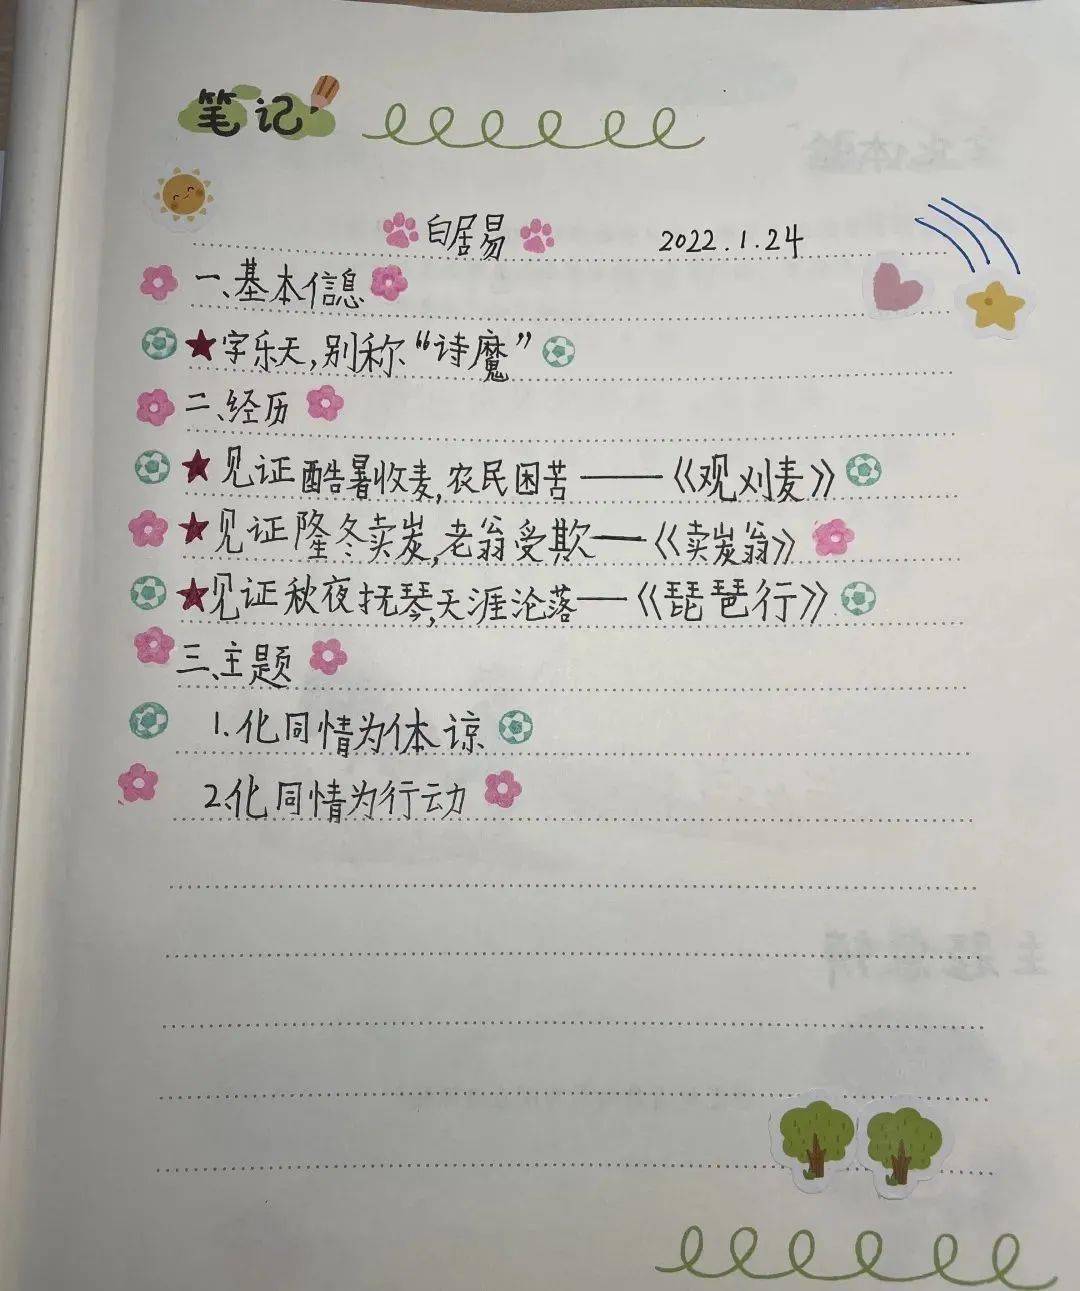 笔记
白居易 2022.1.24
一、基本信息
★字乐天,别称“诗魔”
二、经历
★见证酷暑收麦,农民困苦——《观刈麦》
★见证隆冬卖炭,老翁受欺——《卖炭翁》
★见证秋夜抚琴,天涯沦落——《琵琶行》
三、主题
1.化同情为体谅
2.化同情为行动